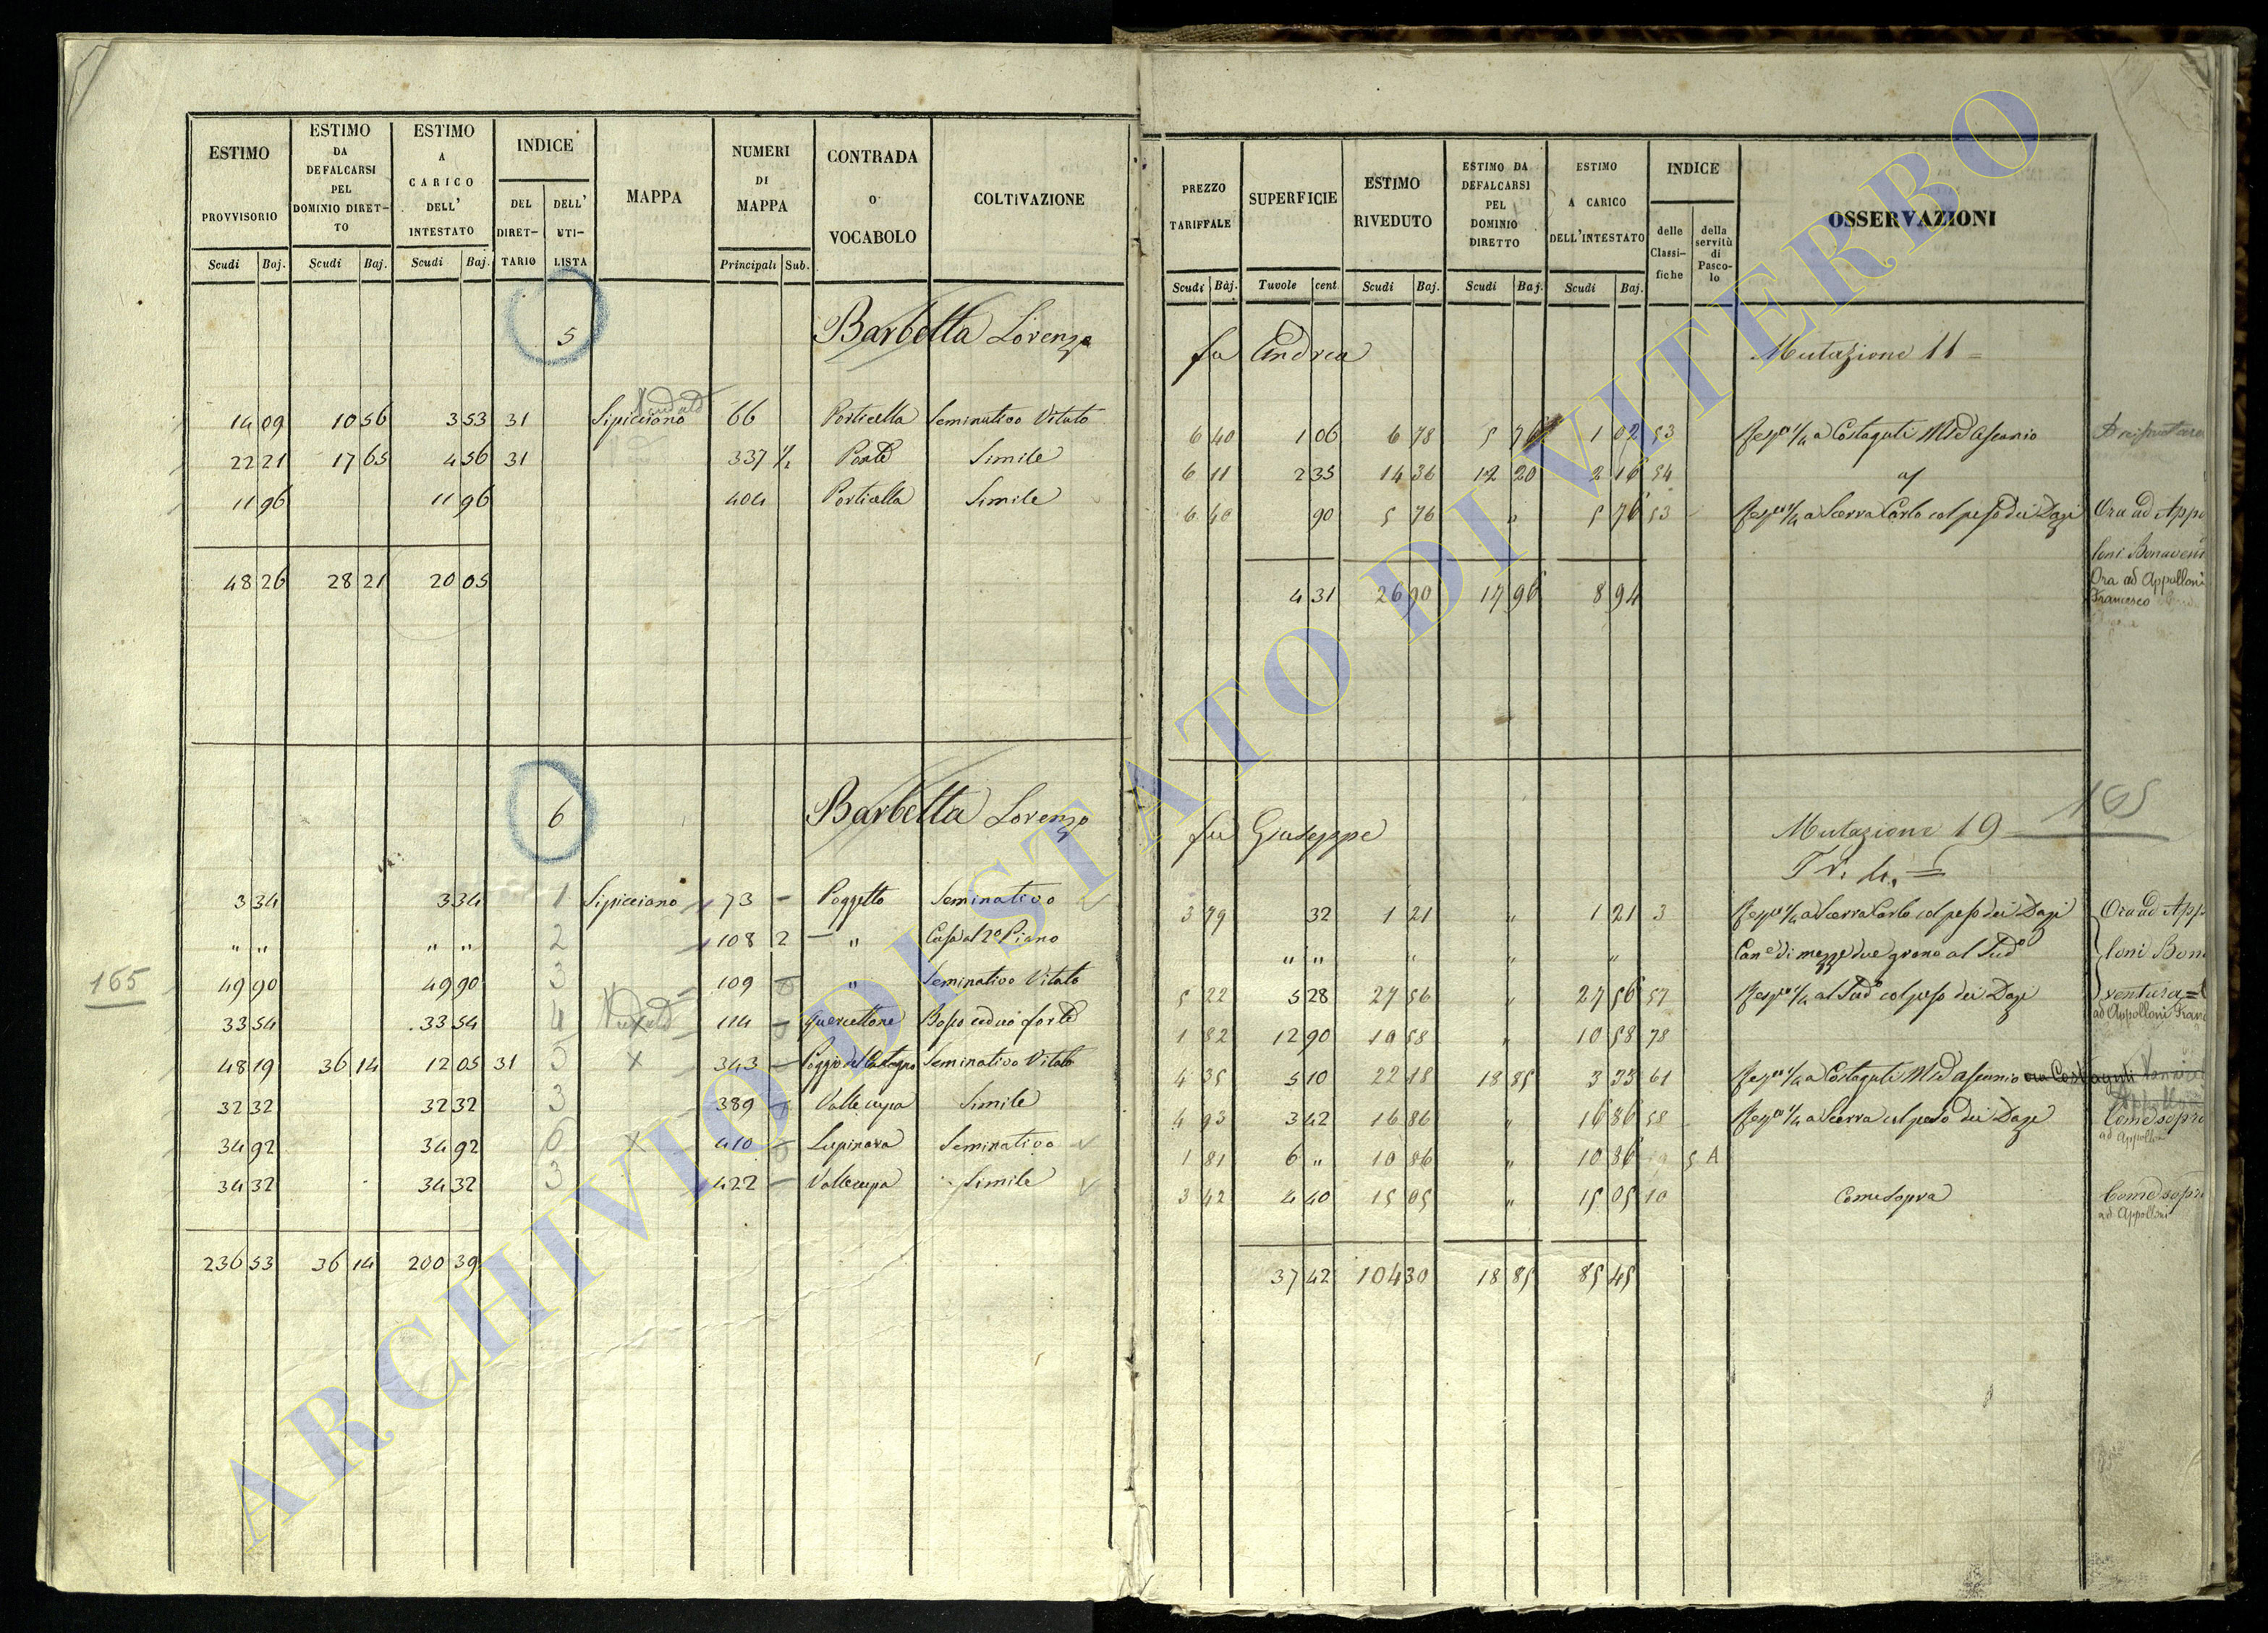 ESTIMO PROVVISORIO Scudi Baj.
ESTIMO DA DEFALCARSI PEL DOMINIO DIRET-TO Scudi Baj.
ESTIMO A CARICO DELL' INTESTATO Scudi Baj.
INDICE DEL DIRET-TARIO DELL' UTI-LISTA
MAPPA
NUMERI DI MAPPA Principali Sub.
CONTRADA O VOCABOLO
COLTIVAZIONE
5 Barbetta Lorenzo
14 09 10 56 3 53 31 Sipicciano 66 Porticella Seminativo Vitato
22 21 17 65 4 56 31 337 Ponte Simile
11 96 11 96 404 Porticella Simile
48 26 28 21 20 05
6 Barbetta Lorenzo
3 34 3 34 1 Sipicciano 73 Poggetto Seminativo
" " " " 2 108 2 " Casa al 2º Piano
165 49 90 49 90 3 109 " Seminativo Vitato
33 54 33 54 4 114 Quercettone Bosco ceduo forte
48 19 36 14 12 05 31 5 X 343 Seminativo Vitato
32 32 32 32 3 389 Valle cupa Simile
34 92 34 92 6 X 410 Lupinara Seminativo
34 32 34 32 3 422 Vallecupa Simile
236 53 36 14 200 39
PREZZO TARIFFALE Scudi Baj.
SUPERFICIE Tavole cent
ESTIMO RIVEDUTO Scudi Baj.
ESTIMO DA DEFALCARSI PEL DOMINIO DIRETTO Scudi Baj.
ESTIMO A CARICO DELL'INTESTATO Scudi Baj.
INDICE delle Classi-fiche della servitù di Pasco-lo
OSSERVAZIONI
fu Andrea Mutazione 11 =
6 40 1 06 6 78 5 76 1 02 53 a Costaguti Ascanio
6 11 2 35 14 36 12 20 2 16 54
6 40 90 5 76 " 5 76 53 a Scerra Carlo col peso dei Dazi Ora ad Appo
loni
4 31 26 90 17 96 8 94 Ora ad Appolloni
Francesco
fu Giuseppe Mutazione 19 165
3 79 32 1 21 " 1 21 3 a Scerra Carlo col peso dei Dazi Ora ad App
" " " " " loni Bona
5 22 5 28 27 56 " 27 56 57 col peso dei Dazi ventura
ad Appolloni
1 82 12 90 10 58 " 10 58 78
4 35 5 10 22 18 18 85 3 33 61 a Costaguti Ascanio
4 93 3 42 16 86 " 16 86 58 a Scerra col peso dei Dazi Come sopra
ad Appollo
1 81 6 " 10 86 " 10 86 5 A
3 42 4 40 15 05 " 15 05 10 Come sopra Come sopra
ad Appolloni
37 42 104 30 18 85 85 45
ARCHIVIO DI STATO DI VITERBO